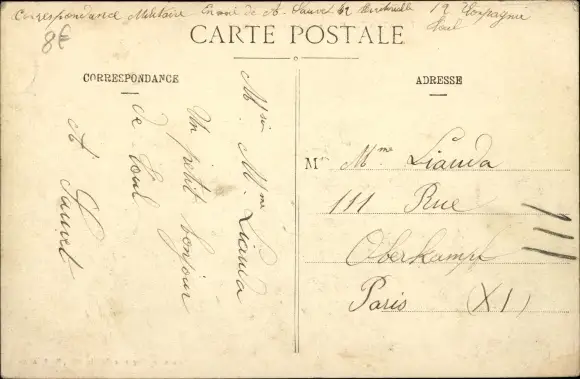 Correspondand Militaire Envoi de A. Sauvet 42 Territorialle 12 Compagnie
Toul
8€
CARTE POSTALE
CORRESPONDANCE
ADRESSE
Msin Mme Lianda
Un petit bonjour
de Toul
A Sauvet
M Mme Lianda
111 Rue
Oberkampf
Paris (XI)
111